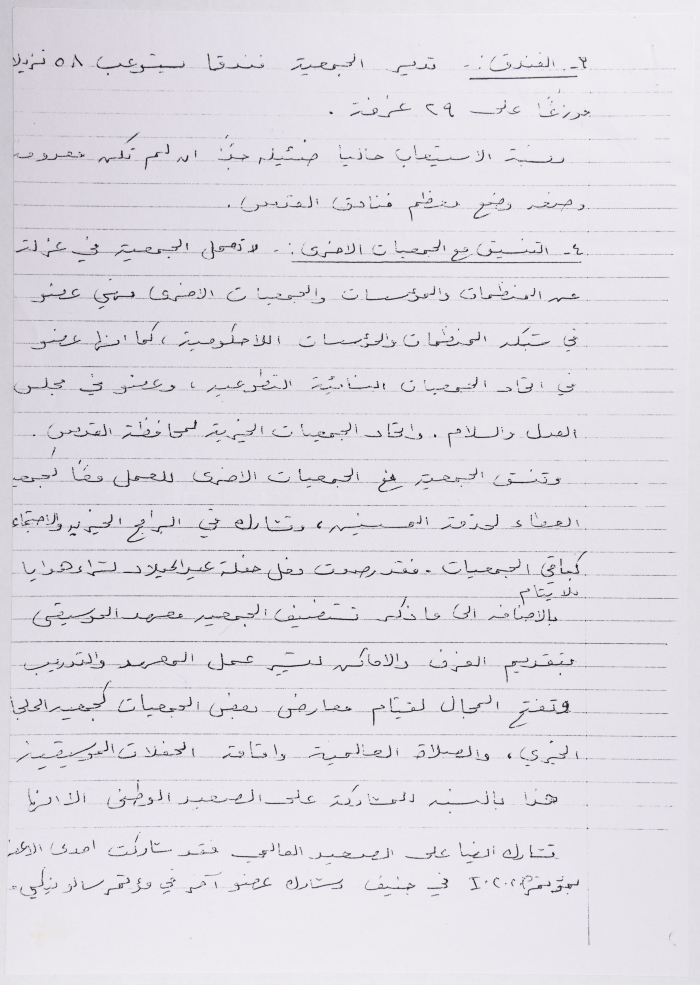 ٣- الفندق :- تدير الجمعية فندقا يستوعب ٥٨ نزيلا
موزعًا على ٢٩ غرفة .
ونسبة الاستيعاب حاليا ضئيلة جدًا ان لم تكن معدومة
وضعه وضع معظم فنادق القدس .
٤- التنسيق مع الجمعيات الاخرى :- لا تعمل الجمعية في عزلة
عن المنظمات والمؤسسات والجمعيات الاخرى فهي عضو
في شبكة المنظمات والمؤسسات اللاحكومية ، كما انها عضو
في اتحاد الجمعيات النسائية التطوعية ، وعضو في مجلس
العدل والسلام . واتحاد الجمعيات الخيرية لمحافظة القدس .
وتنسق الجمعية مع الجمعيات الاخرى للعمل معًا كجمعية
العطاء لخدمة المسنين ، وتشارك في البرامج الخيرية والاجتماع
كباقي الجمعيات . فقد رصدت دخل حفلة عيد الميلاد لشراء هدايا
للايتام
بالاضافة الى ما ذكر تستضيف الجمعية معهد الموسيقى
بتقديم الغرف والاماكن لتسير عمل المعهد والتدريب
وتفتح المجال لقيام معارض بعض الجمعيات كجمعية
الخيري ، والصلاة العالمية واقامة الحفلات الموسيقية
هذا بالنسبة للمشاركة على الصعيد الوطني الا انها
تشارك ايضا على الصعيد العالمي فقد شاركت احدى
بمؤتمر في جنيف وشارك عضو آخر في مؤتمر